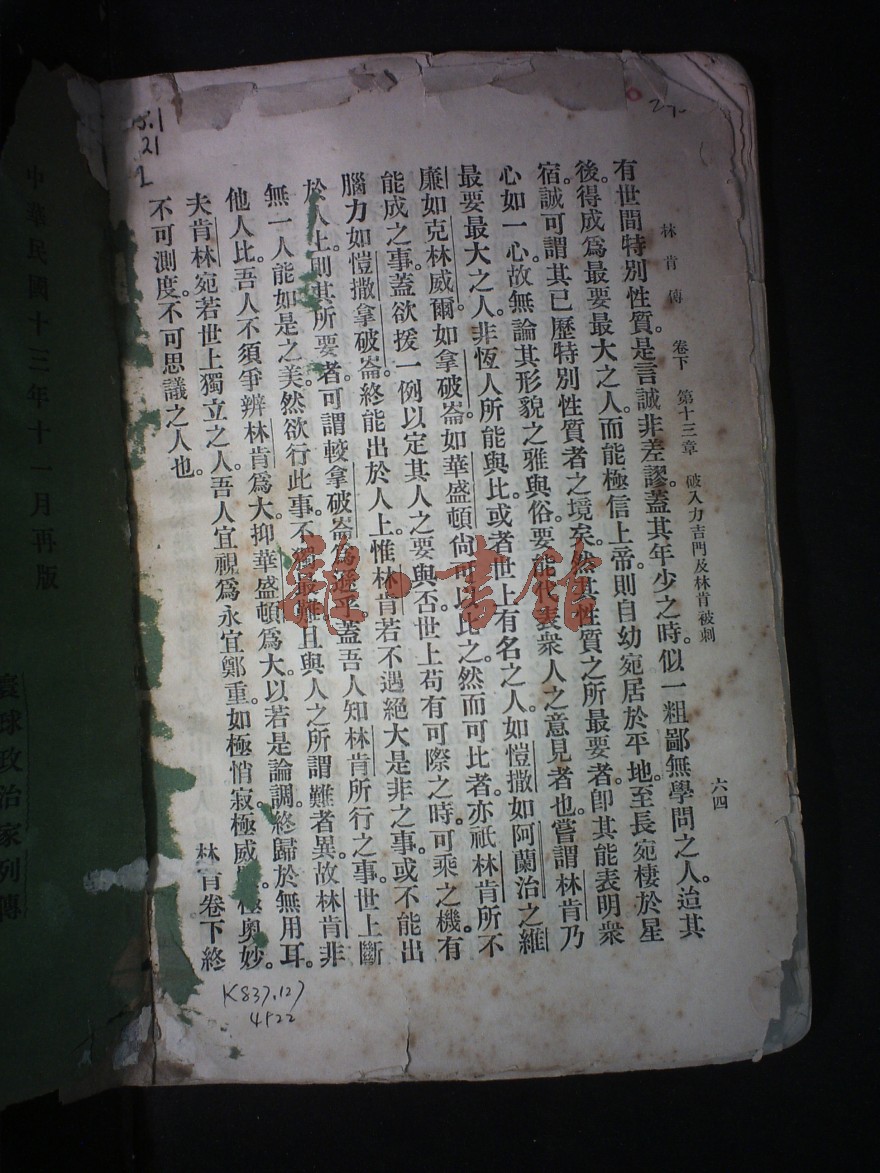 林肯傳 卷下 第十三章 破入力吉門及林肯被刺 六四
有世間特別性質。是言誠非差謬。蓋其年少之時。似一粗鄙無學問之人。迨其
後。得成爲最要最大之人。而能極信上帝。則自幼宛居於平地。至長宛棲於星
宿。誠可謂其已歷特別性質者之境矣。然其性質之所最要者。卽其能表明衆
心如一心。故無論其形貌之雅與俗。要能代表衆人之意見者也。嘗謂林肯乃
最要最大之人。非恆人所能與比。或者世上有名之人。如愷撒如阿蘭治之維
廉如克林威爾如拿破崙如華盛頓尙可以比之。然而可比者。亦祇林肯所不
能成之事。蓋欲援一例以定其人之要與否。世上苟有可際之時。可乘之機。有
腦力如愷撒拿破崙。終能出於人上。惟林肯若不遇絕大是非之事。或不能出
於人上。則其所要者。可謂較拿破崙爲遜乎。蓋吾人知林肯所行之事。世上斷
無一人能如是之美。然欲行此事。不獨最難。且與人之所謂難者異。故林肯非
他人比。吾人不須爭辨林肯爲大。抑華盛頓爲大。以若是論調。終歸於無用耳。
夫肯林宛若世上獨立之人。吾人宜視爲永宜鄭重。如極悄寂。極威 極奧妙。
不可測度。不可思議之人也。
林肯卷下終
中華民國十三年十一月再版
寰球政治家列傳
21
K837.127
4822
龍 書館